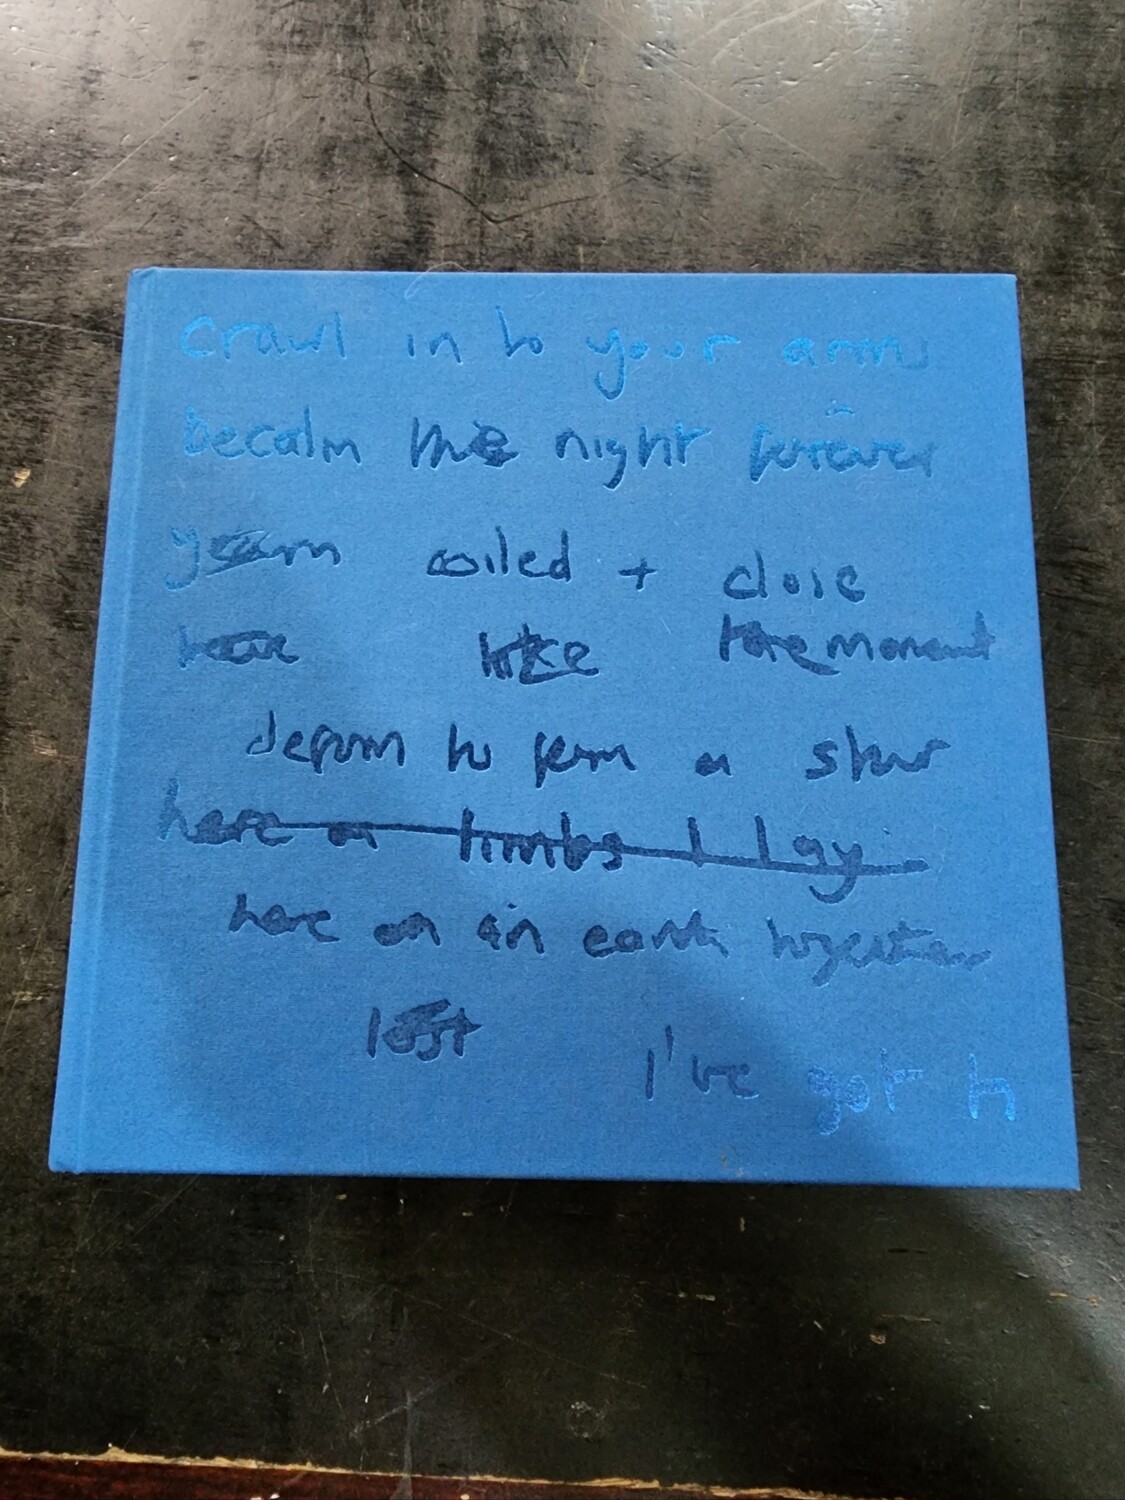 crawl in to your arms
becalm the night forever
yearn coiled + close
like the moment
deform to form a star
here on limbs I lay
here on an earth together
lost I've got h